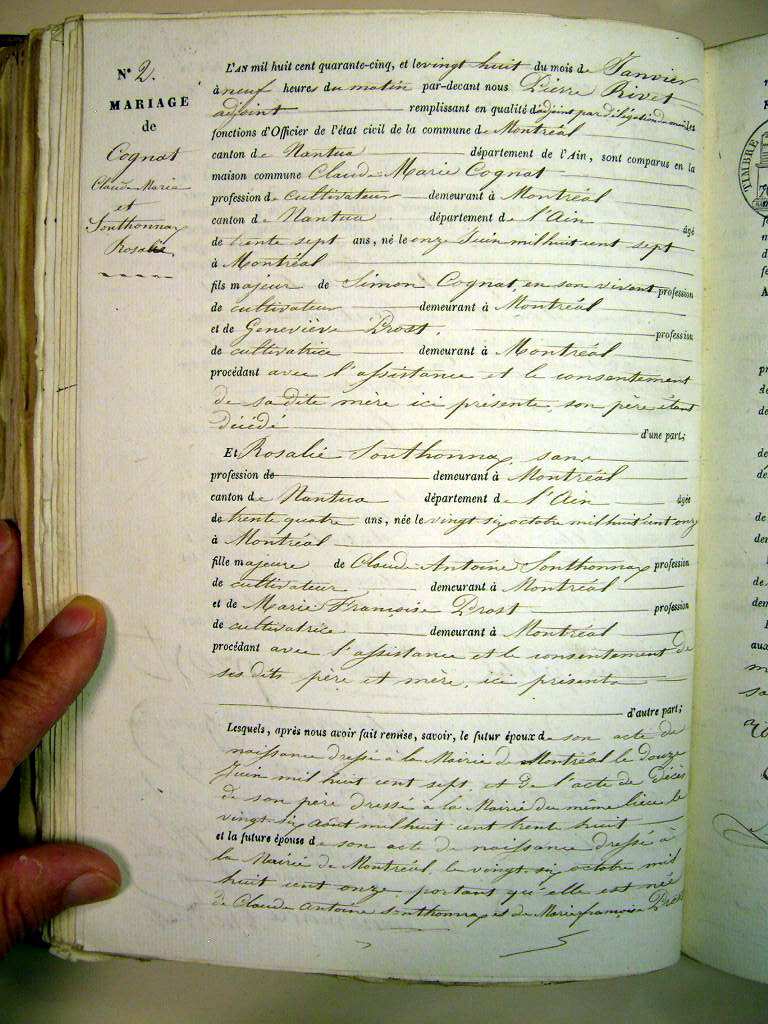 N° 2.
MARIAGE
de
Cognat
Claude Marie
et
Sonthonnax
Rosalie
L'AN mil huit cent quarante-cinq, et le vingt huit du mois de Janvier
à neuf heures du matin par-devant nous Pierre Rivet
adjoint remplissant en qualité d'adjoint par délégation du maire les
fonctions d'Officier de l'état civil de la commune de Montréal
canton de Nantua département de l'Ain, sont comparus en la
maison commune Claude Marie Cognat
profession de cultivateur demeurant à Montréal
canton de Nantua département de l'Ain âgé
de trente sept ans, né le onze Juin mil huit cent sept
à Montréal
fils majeur de Simon Cognat, en son vivant profession
de cultivateur demeurant à Montréal
et de Geneviève Prost, profession
de cultivatrice demeurant à Montréal
procédant avec l'assistance et le consentement
de sa dite mère ici présente, son père étant
décédé d'une part;
Et Rosalie Sonthonnax, sans
profession de demeurant à Montréal
canton de Nantua département de l'Ain âgée
de trente quatre ans, née le vingt six octobre mil huit cent onze
à Montréal
fille majeure de Claude Antoine Sonthonnax profession
de cultivateur demeurant à Montréal
et de Marie Françoise Prost profession
de cultivatrice demeurant à Montréal
procédant avec l'assistance et le consentement de
ses dits père et mère, ici présents
d'autre part;
Lesquels, après nous avoir fait remise, savoir, le futur époux de son acte de
naissance dressé à la Mairie de Montréal le douze
Juin mil huit cent sept, et de l'acte de Décès
de son père dressé à la Mairie du même lieu le
vingt six août mil huit cent trente huit
et la future épouse de son acte de naissance dressé à
la Mairie de Montréal, le vingt six octobre mil
huit cent onze, portant qu'elle est née
de Claude Antoine Sonthonnax et de Marie françoise Prost
TIMBRE